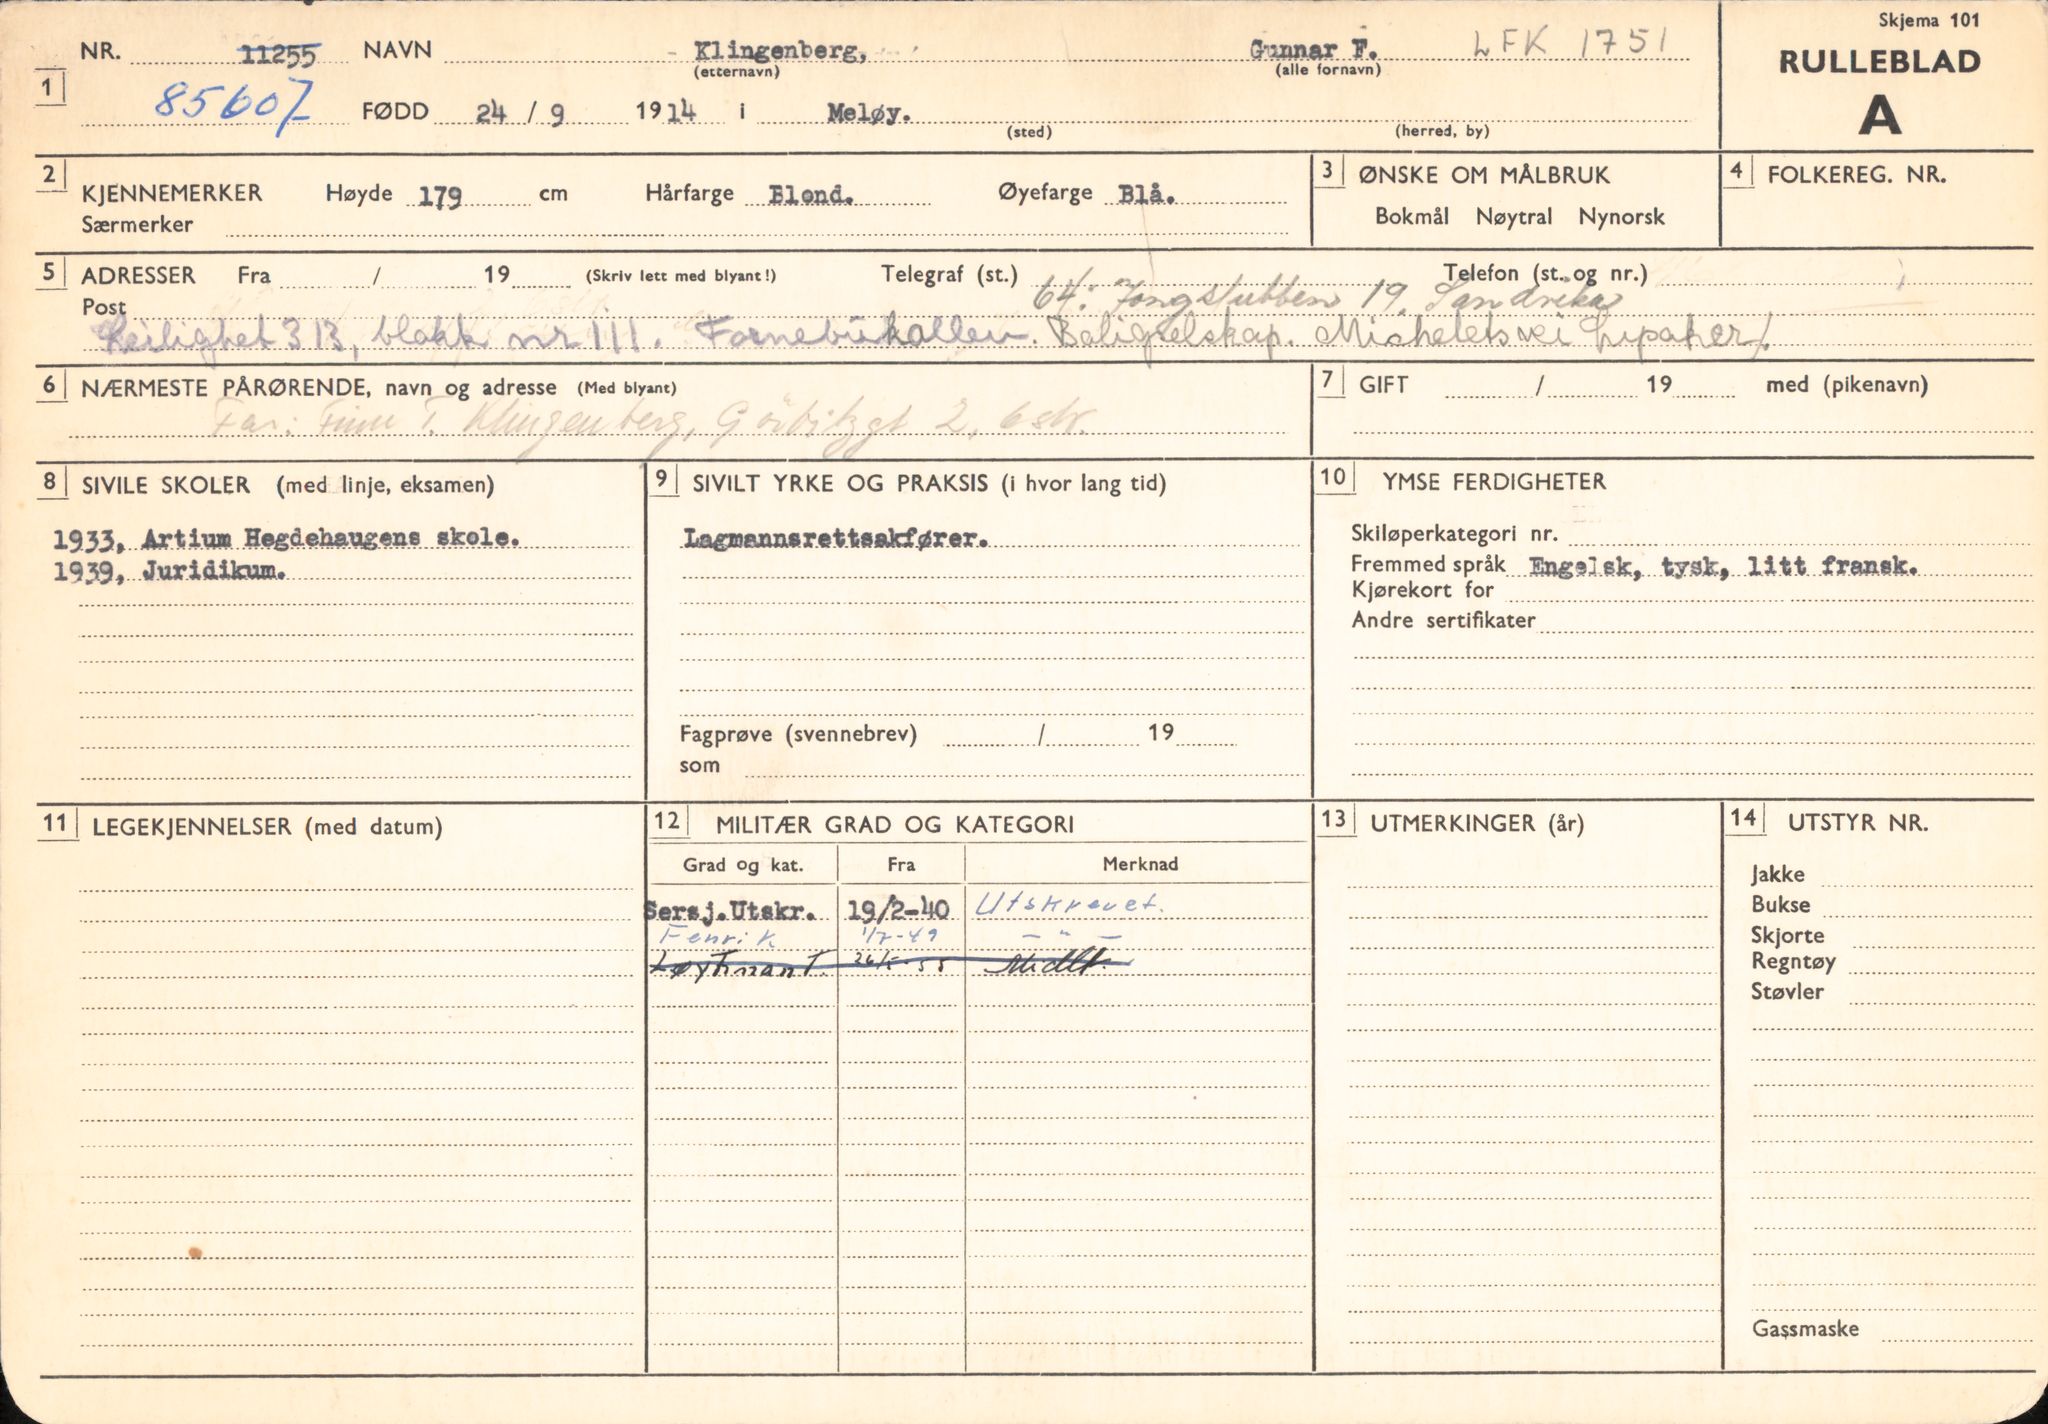 Skjema 101
NR. 11255 NAVN Klingenberg, Gunnar F. LFK 1751
(etternavn) (alle fornavn)
RULLEBLAD
A
1 85607 FØDD 24 / 9 1914 i Meløy.
(sted) (herred, by)
2 KJENNEMERKER Høyde 179 cm Hårfarge Blond. Øyefarge Blå.
Særmerker
3 ØNSKE OM MÅLBRUK
Bokmål Nøytral Nynorsk
4 FOLKEREG. NR.
5 ADRESSER Fra / 19 (Skriv lett med blyant!) Telegraf (st.) Telefon (st. og nr.)
Post 64: Jongstubben 19. Sandvika
Leilighet 313, blokk nr 111. Fornebuhallen. Boligselskap. Michelets vei Lysaker
6 NÆRMESTE PÅRØRENDE, navn og adresse (Med blyant)
Far: Finn T. Klingenberg, 2,
7 GIFT / 19 med (pikenavn)
8 SIVILE SKOLER (med linje, eksamen)
1933, Artium Hegdehaugens skole.
1939, Juridikum.
9 SIVILT YRKE OG PRAKSIS (i hvor lang tid)
Lagmannsrettsakfører.
Fagprøve (svennebrev) / 19
som
10 YMSE FERDIGHETER
Skiløperkategori nr.
Fremmed språk Engelsk, tysk, litt fransk.
Kjørekort for
Andre sertifikater
11 LEGEKJENNELSER (med datum)
12 MILITÆR GRAD OG KATEGORI
Grad og kat. Fra Merknad
Sersj.Utskr. 19/2-40 Utskrevet.
Fenrik 1/7-49 — " —
Løytnant
13 UTMERKINGER (år)
14 UTSTYR NR.
Jakke
Bukse
Skjorte
Regntøy
Støvler
Gassmaske